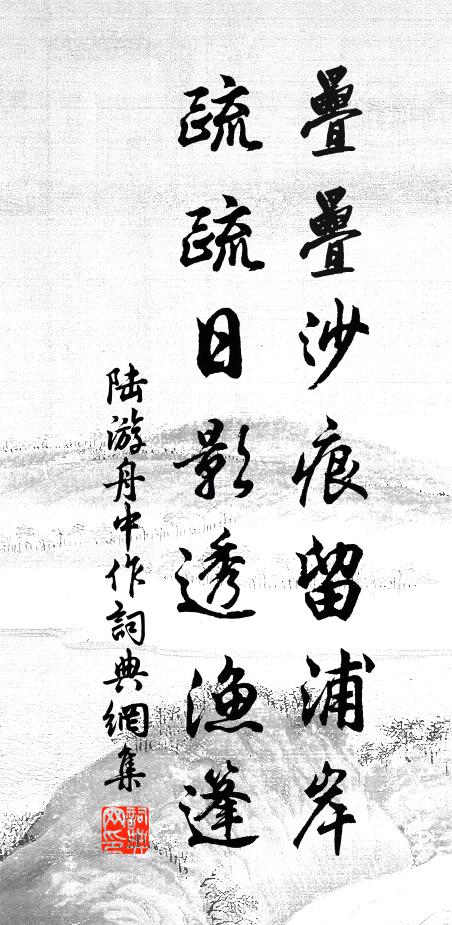 疊疊沙痕留浦岸
疏疏日影透漁篷
陸游舟中作詞典網集